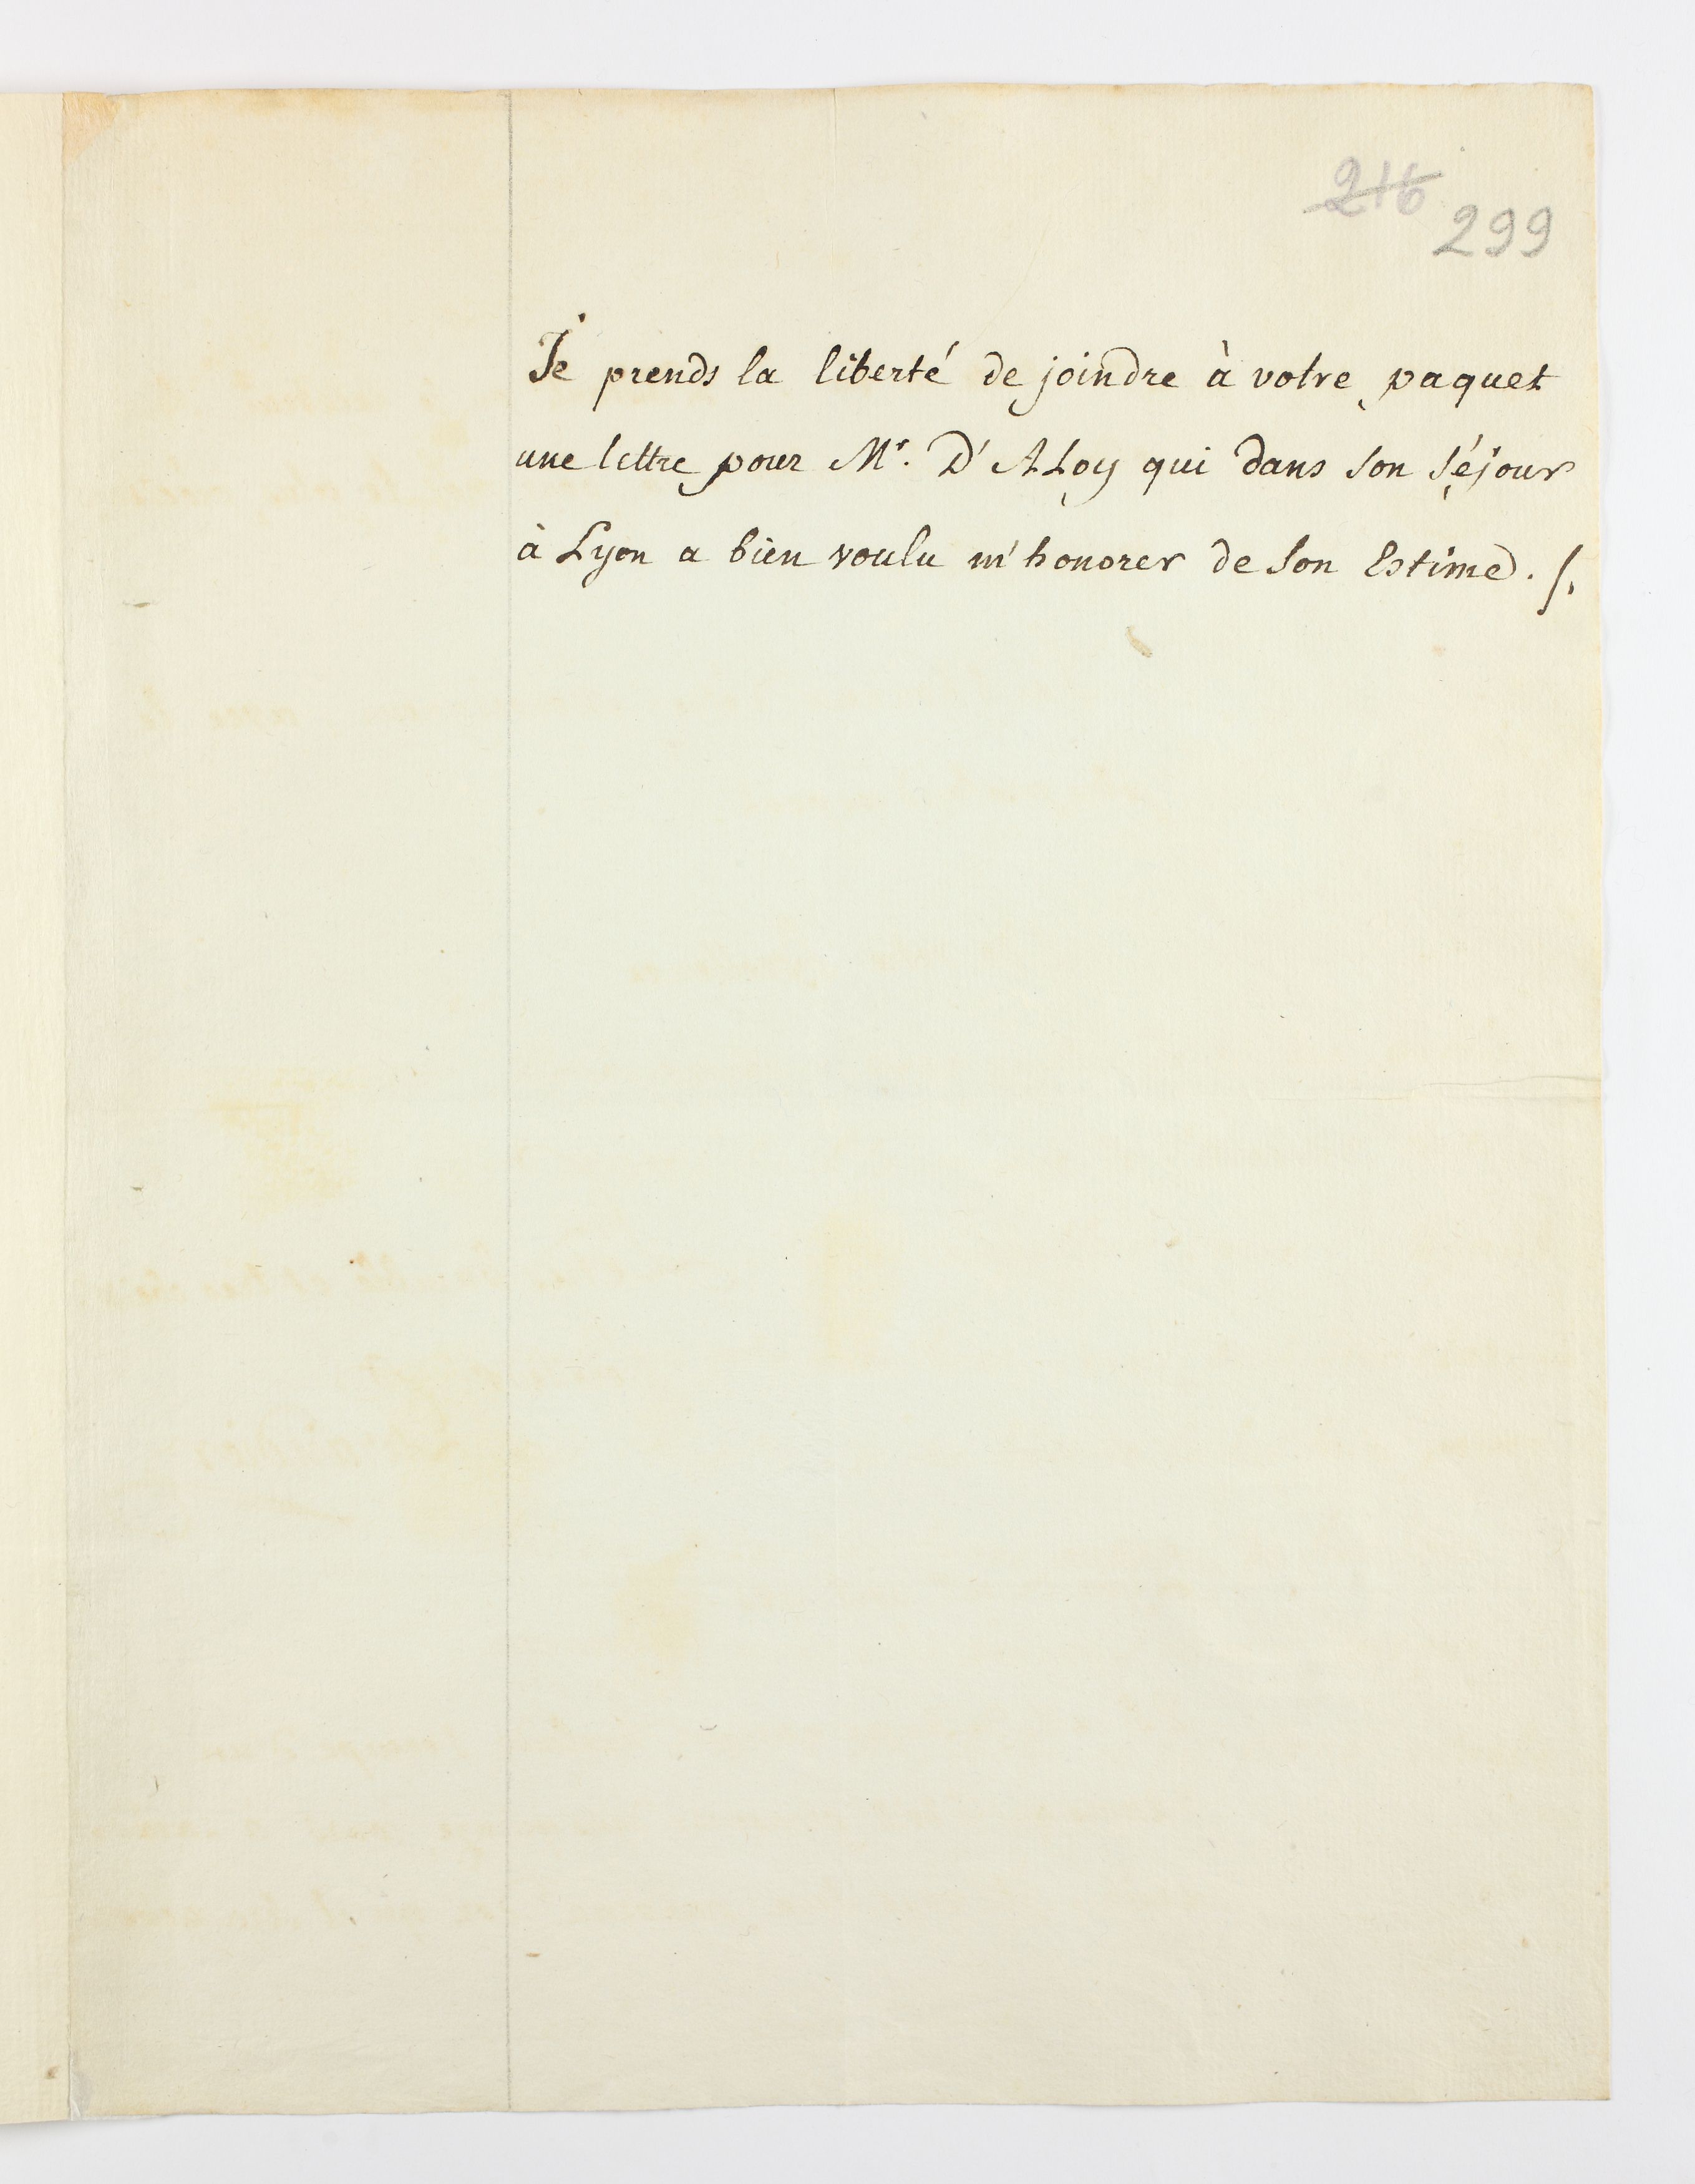 216
299
Je prends la liberté de joindre à votre paquet
une lettre pour Mr. D'Aloy qui dans son séjour
à Lyon a bien voulu m'honorer de son Estime. /.